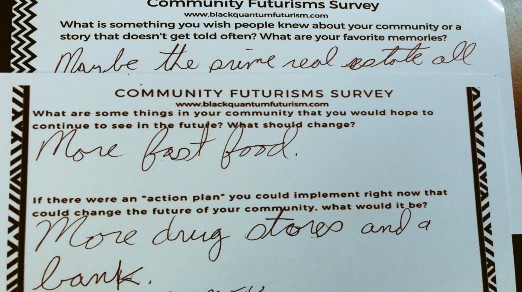 Community Futurisms Survey
www.blackquantumfuturism.com
What is something you wish people knew about your community or a
story that doesn't get told often? What are your favorite memories?
Maybe the prime real estate all
COMMUNITY FUTURISMS SURVEY
www.blackquantumfuturism.com
What are some things in your community that you would hope to
continue to see in the future? What should change?
More fast food.
If there were an "action plan" you could implement right now that
could change the future of your community, what would it be?
More drug stores and a
bank.